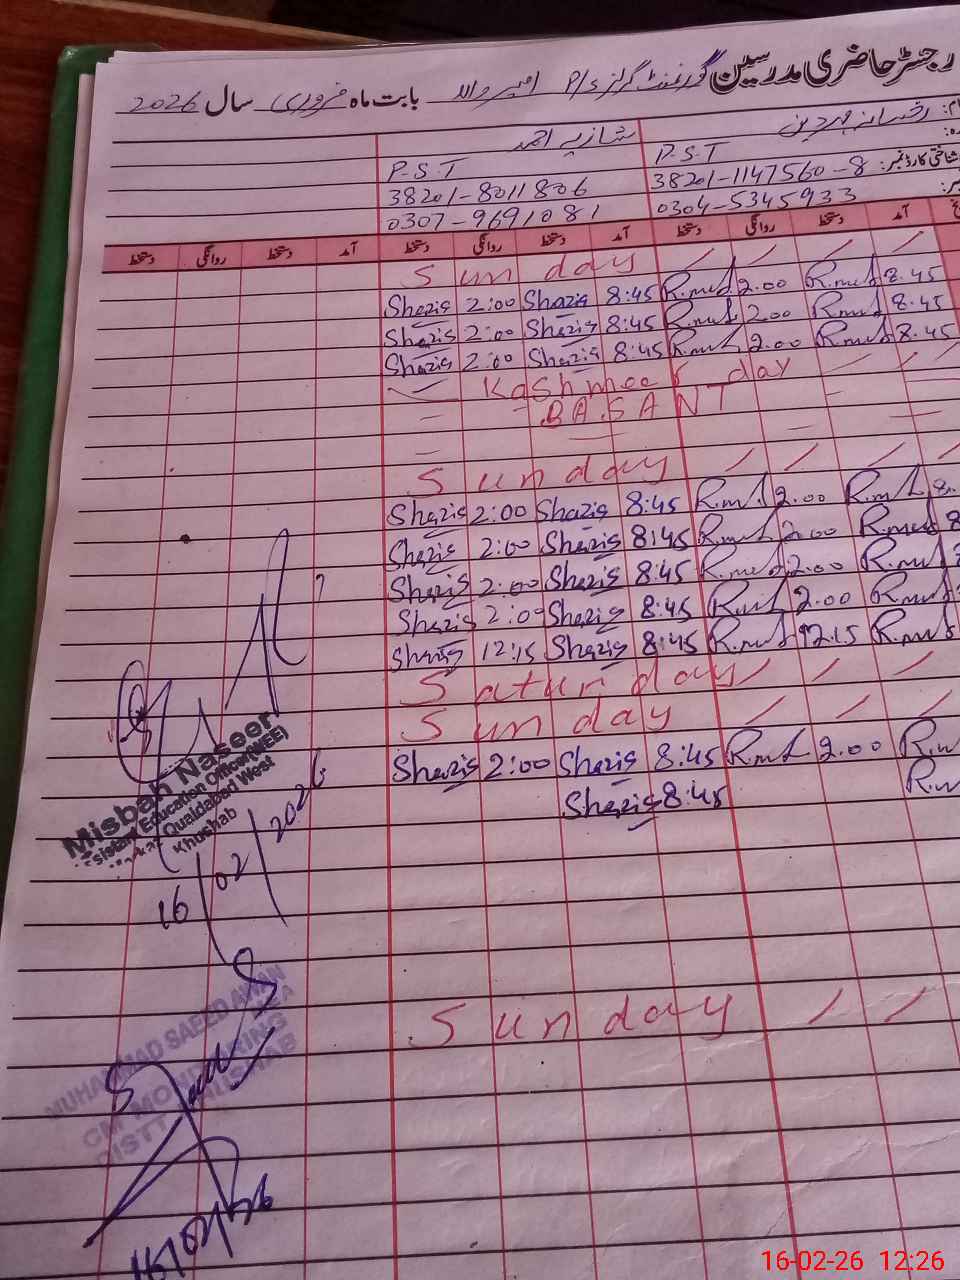 رجسٹر حاضری مدرسین گورنمنٹ گرلز P/S امیر والا بابت ماہ فروری سال 2026
شازیہ احمد
P.S.T P.S.T
شناختی کارڈ نمبر: 38201-1147560-8 38201-8011806
0304-5345933 0307-9691081
آمد دستخط روانگی دستخط آمد دستخط روانگی دستخط آمد دستخط روانگی دستخط
Sunday
Shazia 2:00 Shazia 8:45 2.00 8.45
Shazia 2:00 Shazia 8:45 2.00 8.45
Shazia 2:00 Shazia 8:45 2.00 8.45
Kashmeer day
BASANT
Sunday
Shazia 2:00 Shazia 8:45 2.00
Shazia 2:00 Shazia 8:45 2.00
Shazia 2:00 Shazia 8:45 2.00
Shazia 2:00 Shazia 8:45 2.00
Shazia 12:15 Shazia 8:45 12.15
Saturday
Sunday
Shazia 2:00 Shazia 8:45 2.00
Shazia 8:45
Misbah Naseer
Assistant Education Officer(WEE)
Markaz Quaidabad West
Khushab
16/02/2026
Sunday
MUHAMMAD SAEED AWAN
MONITORING
DISTT KHUSHAB
16/02/26
16-02-26 12:26